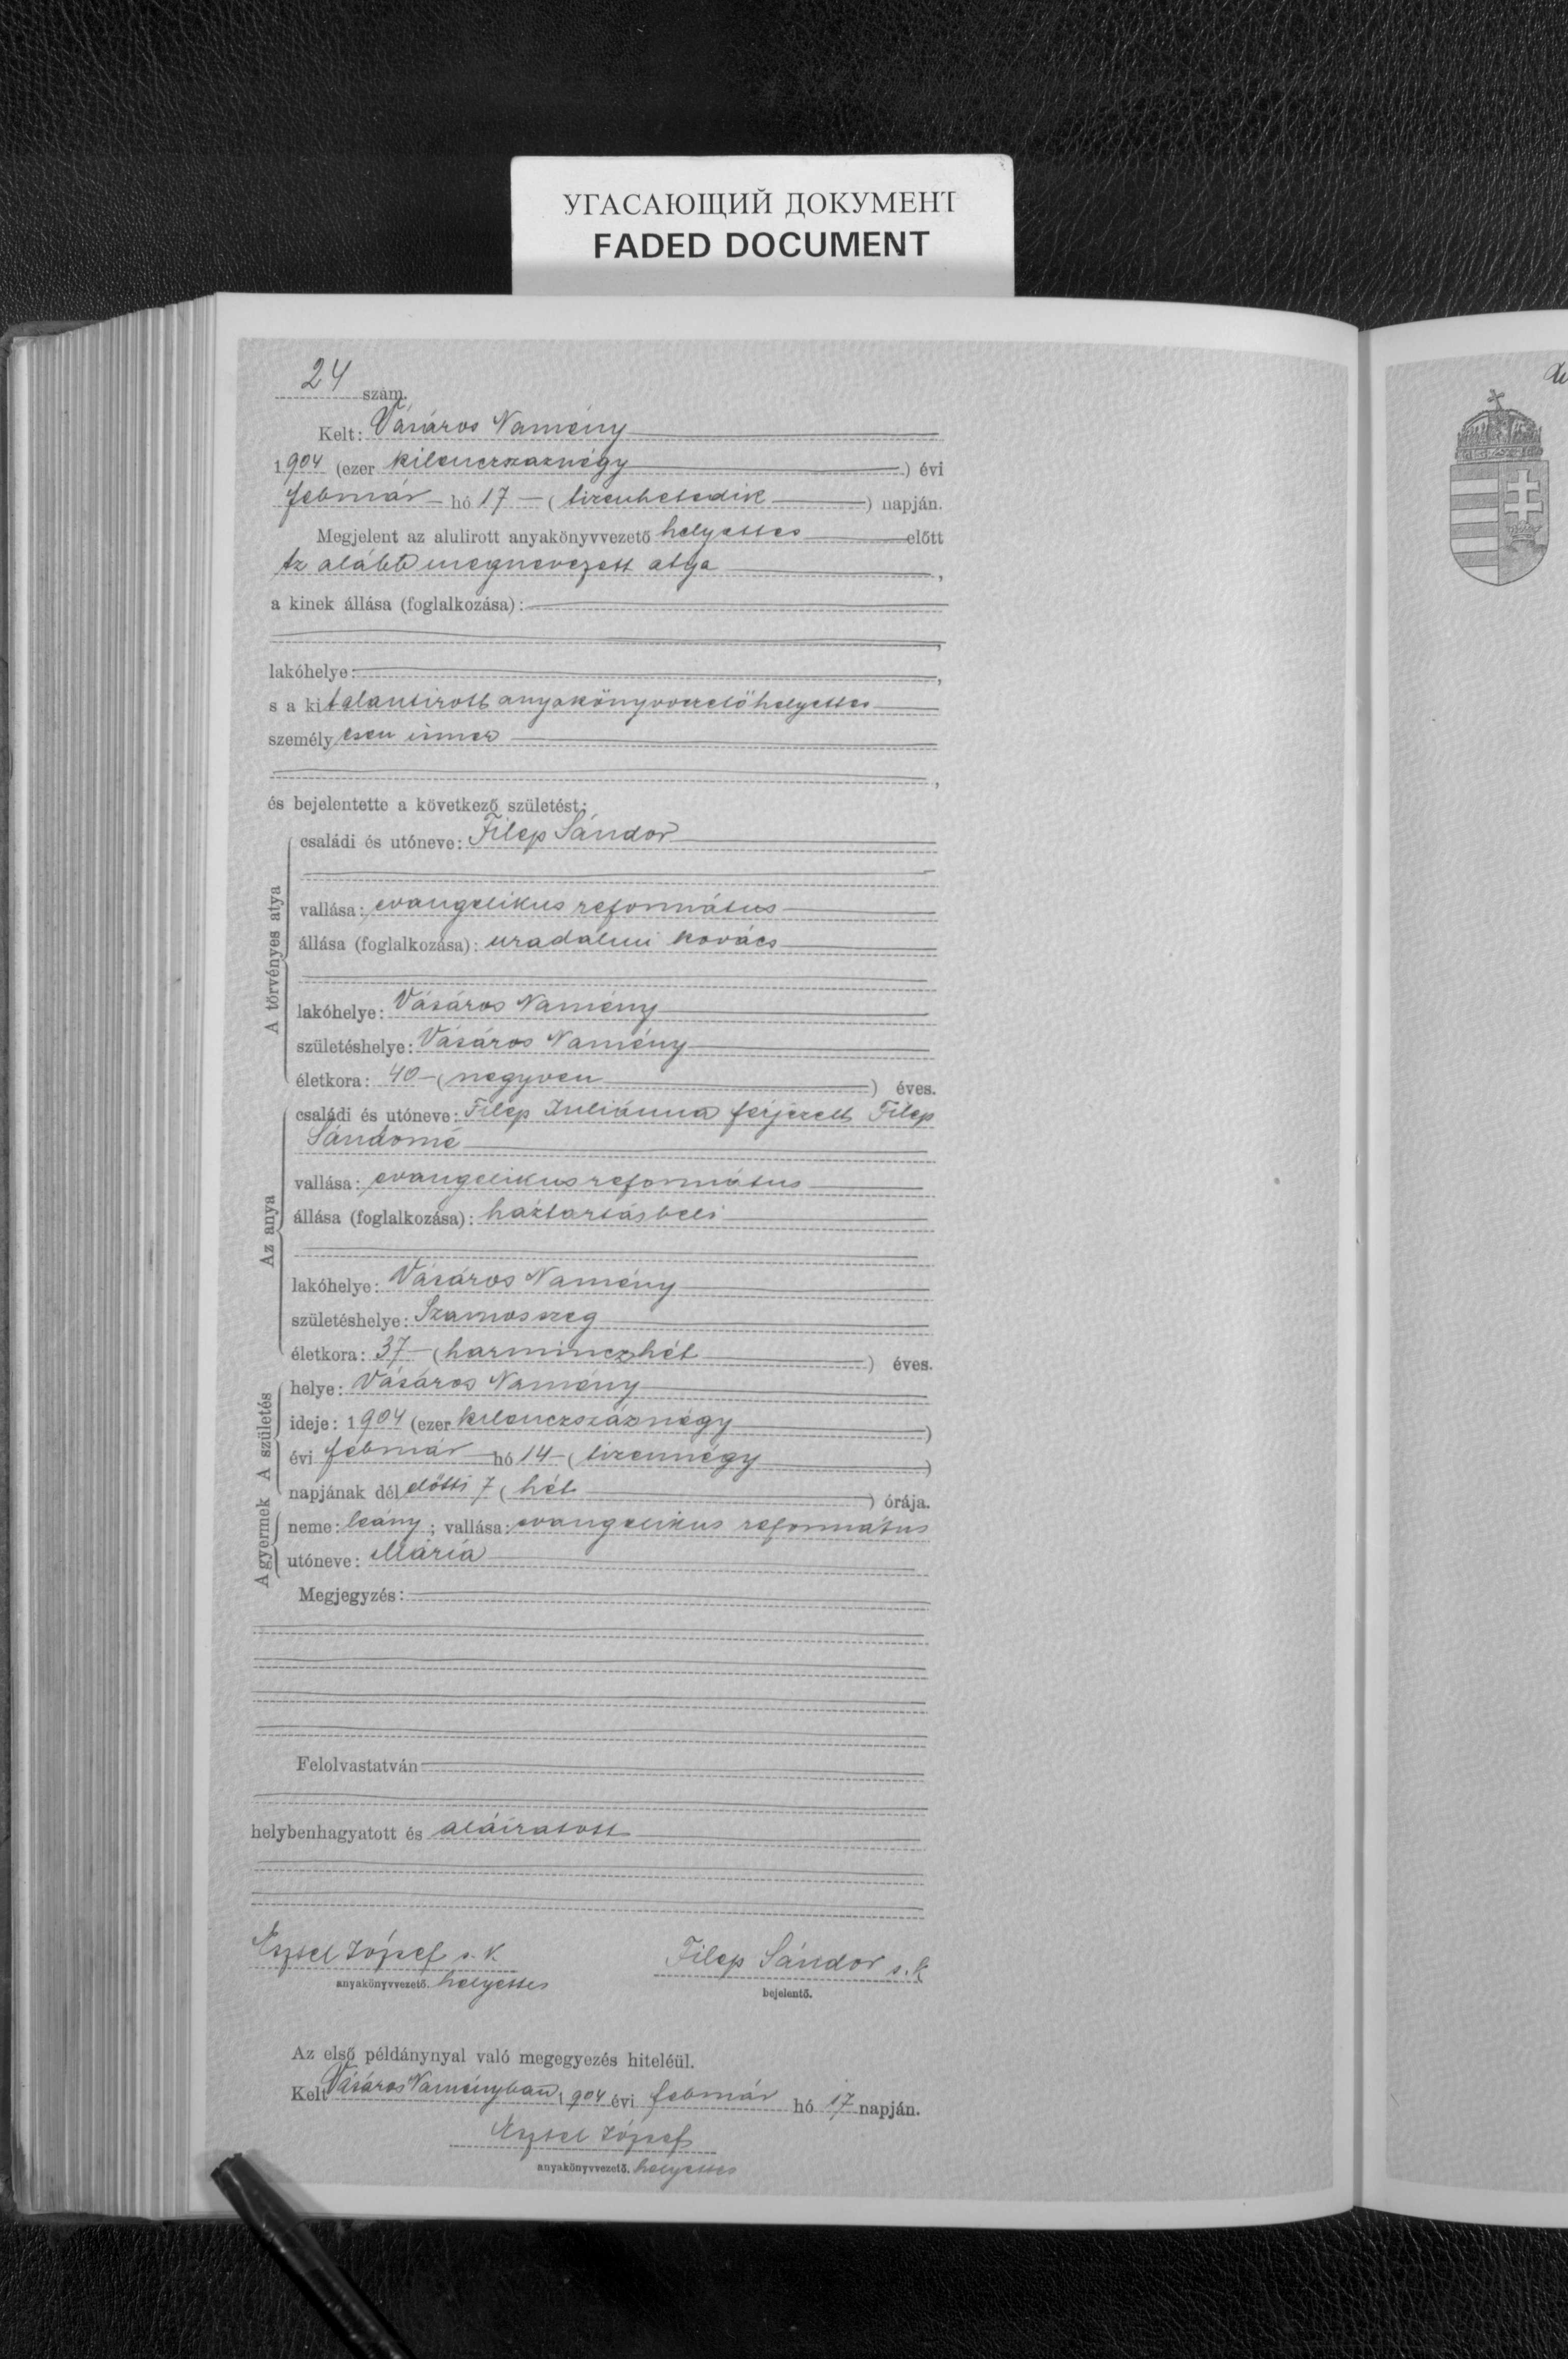 УГАСАЮЩИЙ ДОКУМЕНТ
FADED DOCUMENT
24 szám.
Kelt: Vásáros Namény
1904 (ezer kilenczszaznégy) évi
február hó 17 – (tizenhetedik) napján.
Megjelent az alulirott anyakönyvvezető helyettes előtt
Az alább megnevezett atya,
a kinek állása (foglalkozása):
lakóhelye:,
s a kit alantirott anyakönyvvezetőhelyettes
személyesen ismer
,
és bejelentette a következő születést:
A törvényes atya
családi és utóneve: Filep Sándor
vallása: evangelikus református
állása (foglalkozása): uradalmi kovács
lakóhelye: Vásáros Namény
születéshelye: Vásáros Namény
életkora: 40 – (negyven) éves.
Az anya
családi és utóneve: Filep Juliánna férjezett Filep
Sándorné
vallása: evangelikus református
állása (foglalkozása): háztartásbeli
lakóhelye: Vásáros Namény
születéshelye: Szamosszeg
életkora: 37 – (harminczhét) éves.
A születés
helye: Vásáros Namény
ideje: 1904 (ezer kilenczszáznégy)
évi február hó 14 – (tizennégy)
napjának dél előtti 7 (hét) órája.
A gyermek
neme: leány; vallása: evangelikus református
utóneve: Mária
Megjegyzés:
Felolvastatván
helybenhagyatott és aláiratott
József s. k. Filep Sándor s. k.
anyakönyvvezető. helyettes bejelentő.
Az első példánynyal való megegyezés hiteléül.
Kelt Vásáros Naményban, 1904 évi február hó 17 napján.
József
anyakönyvvezető. helyettes